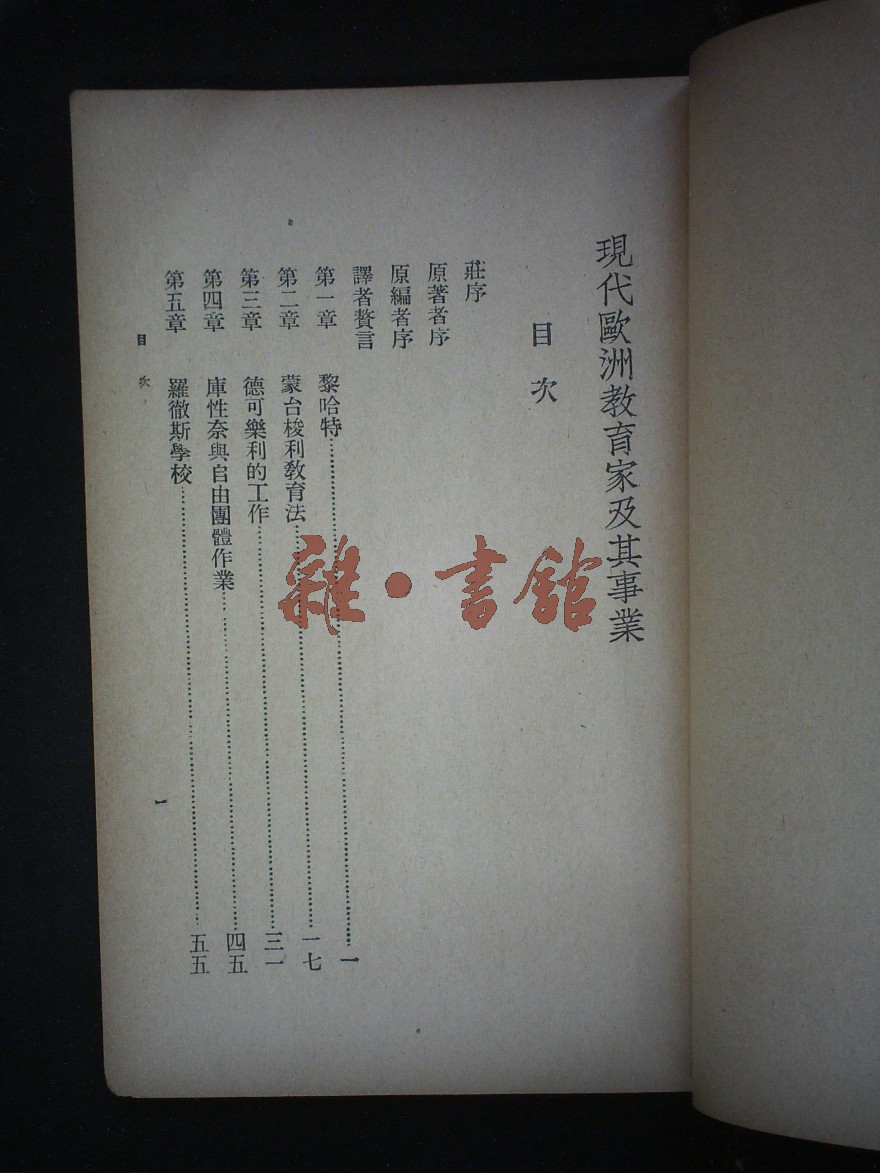 現代歐洲教育家及其事業
目次
莊序
原著者序
原編者序
譯者贅言
第一章 黎哈特 一
第二章 蒙台梭利教育法 一七
第三章 德可樂利的工作 三一
第四章 庫性奈與自由團體作業 四五
第五章 羅徹斯學校 五五
目次
一
雜·書館